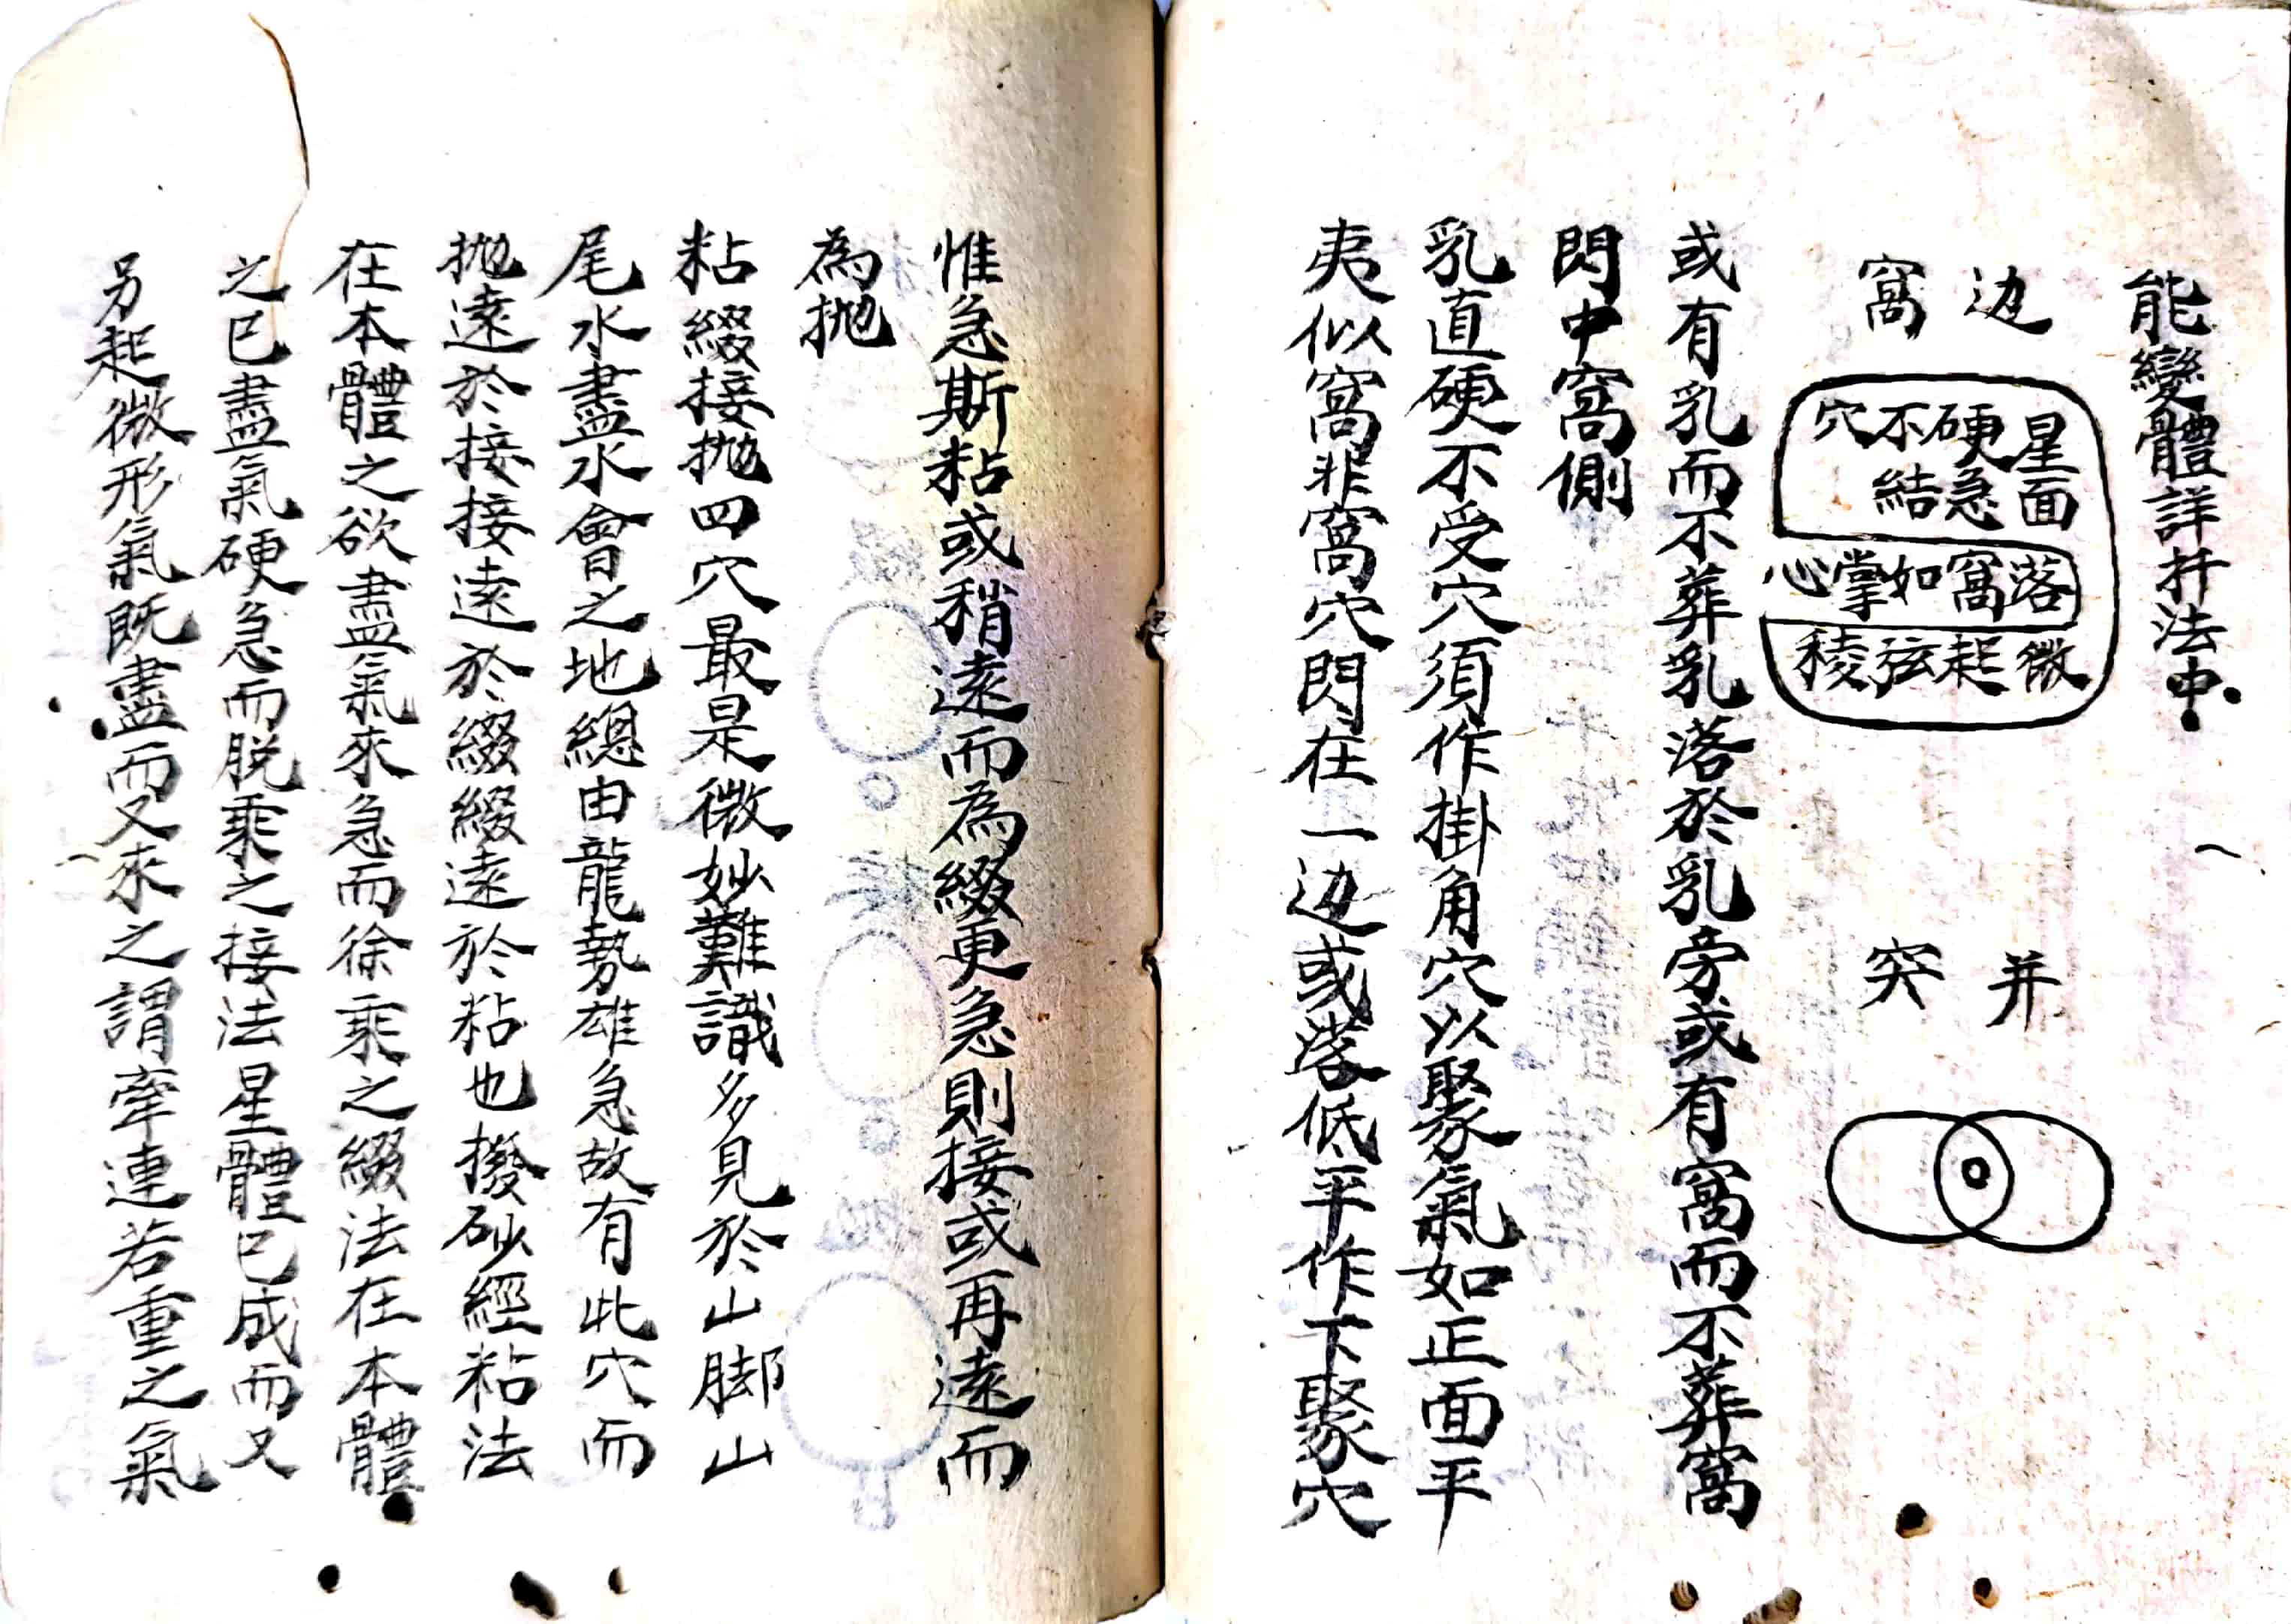 能變體詳扦法中
边窩
星面
硬急
不結
穴
落窩如掌心
微起弦稜
并突
或有乳而不葬乳落於乳旁或有窩而不葬窩
閃中窩側
乳直硬不受穴須作掛角穴以聚氣如正面平
夷似窩非窩穴閃在一边或落低平作下聚穴
惟急斯粘或稍遠而為綴更急則接或再遠而
為拋
粘綴接拋四穴最是微妙難識多見於山脚山
尾水盡水會之地總由龍勢雄急故有此穴而
拋遠於接接遠於綴綴遠於粘也撥砂經粘法
在本體之欲盡氣來急而徐乘之綴法在本體
之已盡氣硬急而脱乘之接法星體已成而又
另起微形氣既盡而又來之謂牽連若重之氣